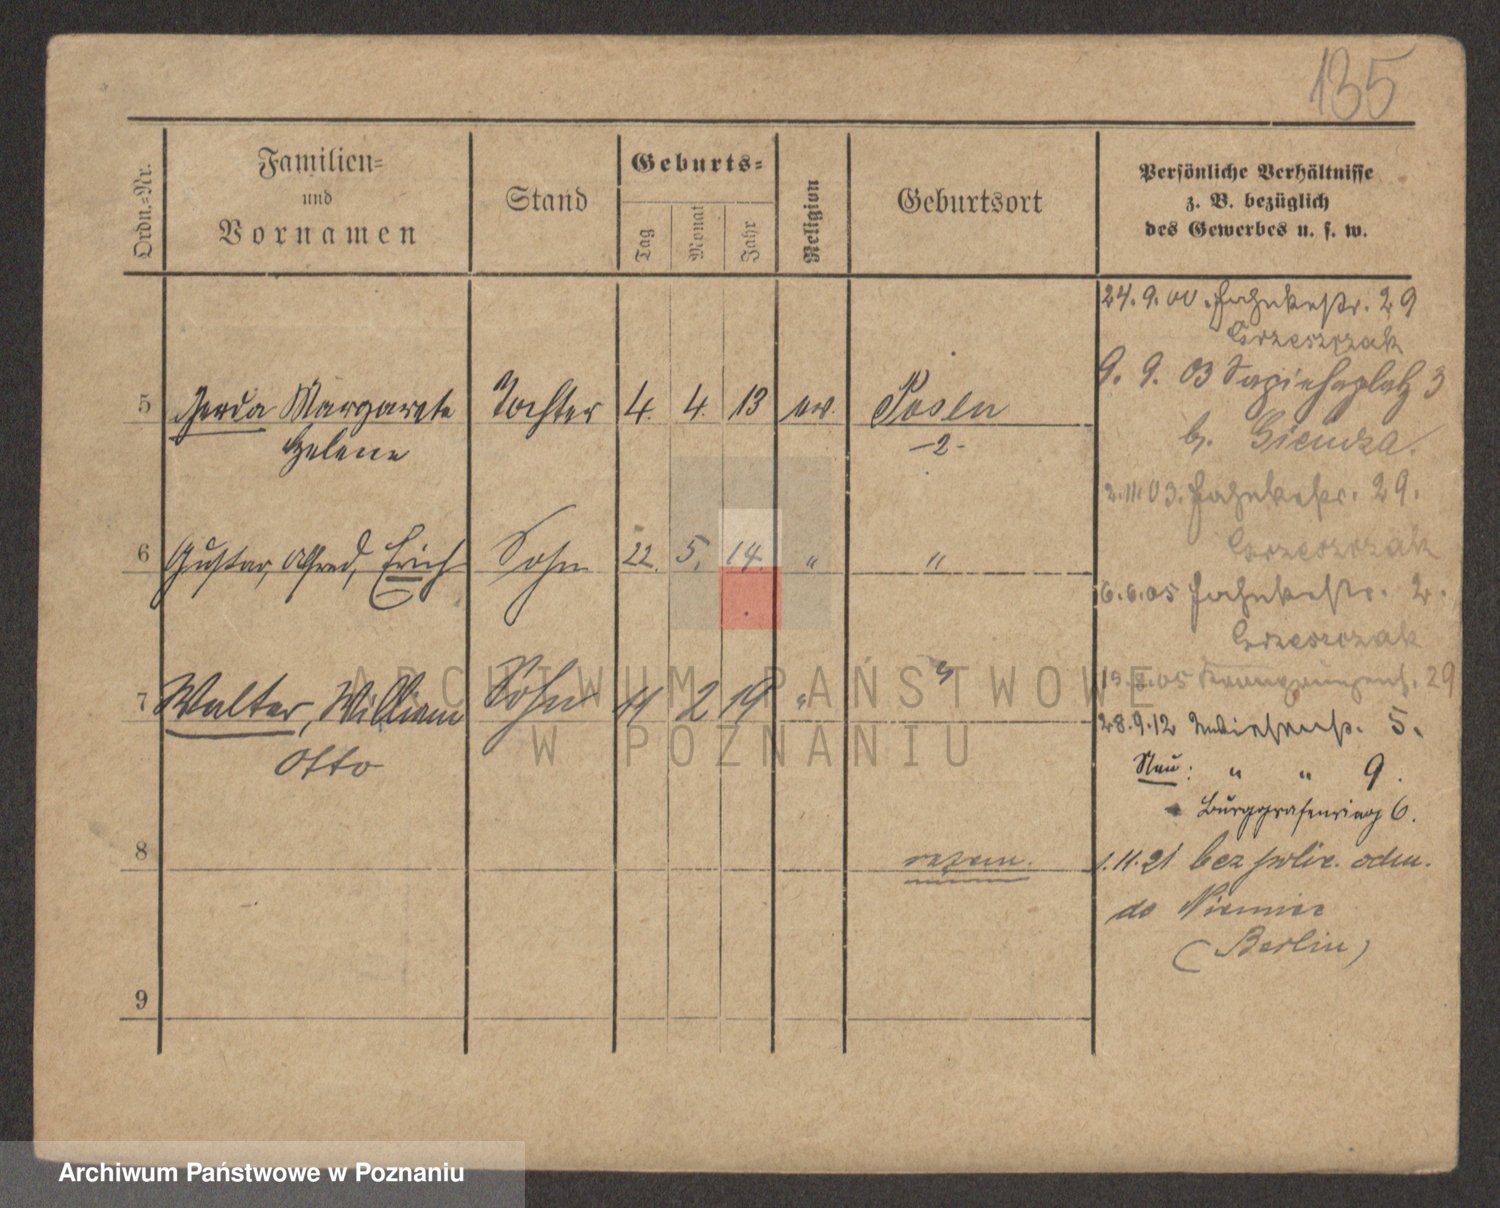 135
Ordn.=Nr.
Familien=
und
Vornamen
Stand
Geburts=
Tag
Monat
Jahr
Religion
Geburtsort
Persönliche Verhältnisse
z. B. bezüglich
des Gewerbes u. s. w.
24.9.00. Jahnkestr. 29
Grzeszczak
9. 9. 03 Sapiehaplatz 3
b.
2.11.03. Jahnkestr. 29.
Grzeszczak
6.6.05 Jahnkestr. 2.
Grzeszczak
29
28.9.12 5.
Neu: " " 9.
Burggrafenring 6.
1.11.21 bez polic. odm.
do Niemiec
(Berlin)
5 Gerda Margarete Tochter 4. 4. 13 ev. Posen
Helene -2-
6 Gustav, Alfred, Erich Sohn 22. 5. 14. " "
7 Walter, William Sohn 11 2 19 " "
Otto
8
9
ARCHIWUM PAŃSTWOWE
W POZNANIU
Archiwum Państwowe w Poznaniu